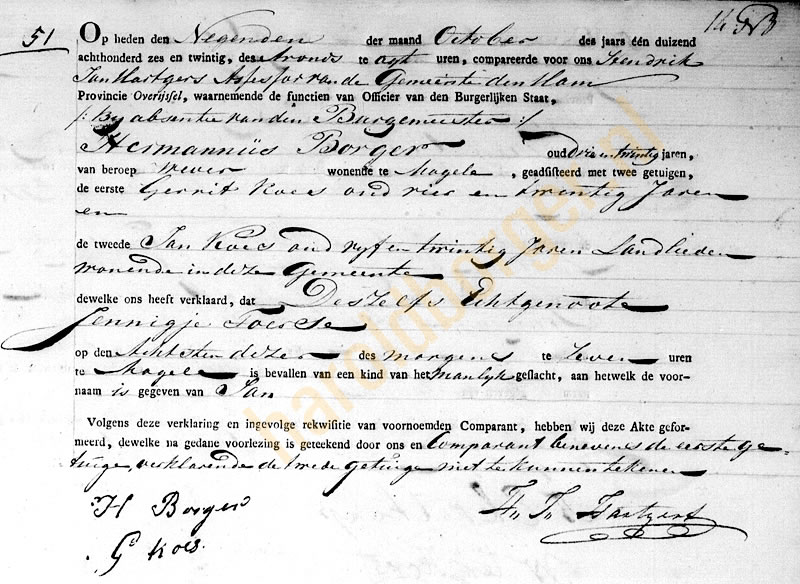 51
Op heden den Negenden der maand October des jaars één duizend
achthonderd zes en twintig, des Avonds te agt uren, compareerde voor ons Hendrik
Jan Hartgers Assessor van de Gemeente den Ham
Provincie Overijssel, waarnemende de functien van Officier van den Burgerlijken Staat,
/: By absentie van den Burgemeester :/
Hermannüs Borger oud Drie en twintig jaren,
van beroep wever wonende te Magele, geadsisteerd met twee getuigen,
de eerste Gerrit Koes oud vier en twintig Jaren
en
de tweede Jan Koes oud vyf en twintig Jaren Landlieden
wonende in deze Gemeente
dewelke ons heeft verklaard, dat Deszelfs Echtgenoote
Jennigje
op den Achtsten dezer des morgens te zeven uren
te Magele is bevallen van een kind van het manlyk geslacht, aan hetwelk de voor-
naam is gegeven van Jan
Volgens deze verklaring en ingevolge rekwisitie van voornoemden Comparant, hebben wij deze Akte gefor-
meerd, dewelke na gedane voorlezing is geteekend door ons en Comparant benevens de eerste ge-
tuige, verklarende de twede getuige niet te kunnen tekenen
H Borger
G Koes.
haroldborger.nl